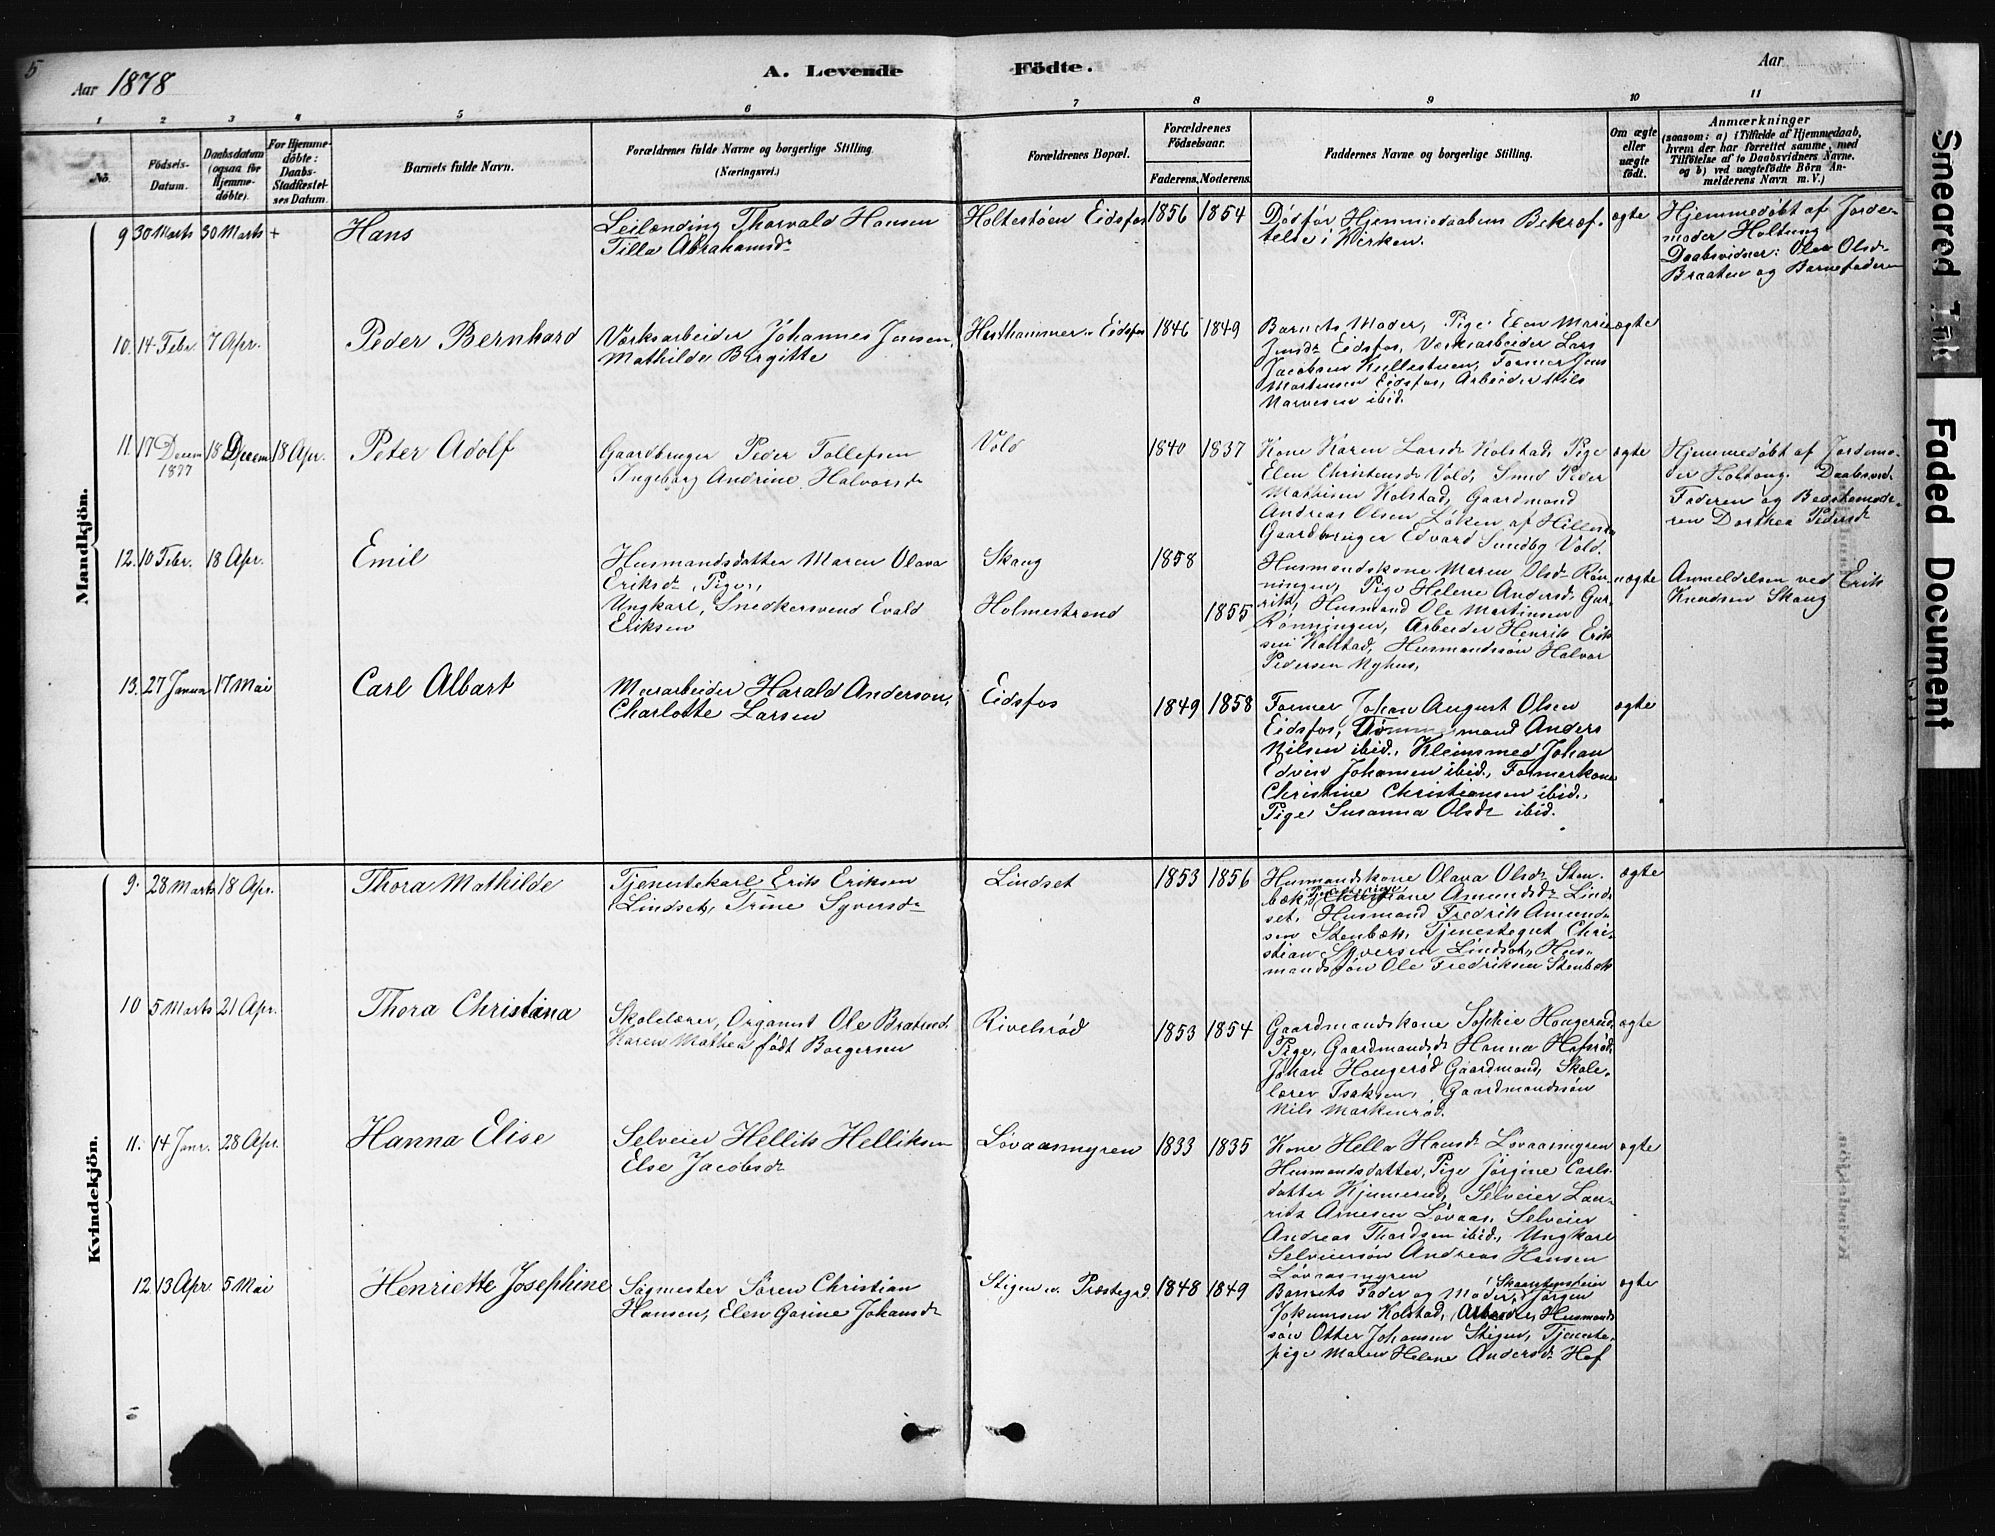 5
Aar 1878
A. Levende
Födte.
Aar
1 2 3 4 5 6 7 8 9 10 11
No.
Födsels-
Datum.
Daabsdatum
(ogsaa för
Hjemme-
döbte).
For Hjemme-
döbte:
Daabs-
Stadfæstel-
ses Datum.
Barnets fulde Navn.
Forældrenes fulde Navne og borgerlige Stilling
(Næringsvei.)
Forældrenes Bopæl.
Forældrenes
Födselsaar.
Faderens. Moderens.
Faddernes Navne og borgerlige Stilling.
Om ægte
eller
uægte
født.
Anmærkninger
(saasom: a) i Tilfælde af Hjemmedaab,
hvem der har forrettet samme, med
Tilföielse af to Daabsvidners Navne.
og b) ved uægtefödte Börn An-
melderens Navn m. V.)
Mandkjön.
9 30 Marts 30 Marts +
Hans
Leilænding Thorvald Hansen
Tilla Abrahamsdr
Holtestøen Eidsfos
1856 1854
Død før Hjemmedaabens Bekræf-
telse i Kirken.
ægte
Hjemmedøbt af Jorde-
moder Holtung
Daabsvidner: Olea Olsdr
Braaten og Barnefaderen
10. 14 Febr. 7 Apr.
Peder Bernhard
Værksarbeider Johannes Jensen,
Mathilde Birgitte
Hesthammer. Eidsfos
1846 1849
Barnets Moder, Pige Elen Marie
Jensdr Eidsfos, Værksarbeider Lars
Jacobsen Kullestuen, Former Jens
Mortensen Eidsfos, Arbeider Nils
Narvesen ibid.
ægte
11. 17 Decem 1877 18 Decem 18 Apr.
Peter Adolf
Gaardbruger Peder Tollefsen
Ingeborg Andrine Halvorsdr
Vold
1840 1837
Kone Karen Larsdr Kolstad, Pige
Elen Christensdr Vold, Smed Peder
Mathisen Kolstad, Gaardmand
Andreas Olsen Løken af Hillestad
Gaardbruger Edvard Sundby Vold.
ægte
Hjemmedøbt af Jordemo-
der Holtung. Daabsvid:
Faderen og Bedstemode-
ren Dorthea Pedersdr
12. 10 Febr. 18 Apr.
Emil
Husmandsdatter Maren Olava
Eriksdr, Pige,
Ungkarl, Snedkersvend Evald
Eriksen
Skaug
Holmestrand
1858
1855
Husmandskone Maren Olsdr Røn-
ningen, Pige Helene Andersdr Gus-
rik, Husmand Ole Martinsen
Rønningen, Arbeider Henrik Erik
sen Kolstad, Husmandssøn Halvor
Pedersen Nyhus,
uægte
Anmeldelsen ved Erik
Knudsen Skaug
13. 27 Janua 17 Mai
Carl Albert
Murarbeider Harald Anderson,
Charlotte Larsen
Eidsfos
1849 1858
Former Johan August Olsen
Eidsfos, Tømmermand Anders
Nilsen ibid., Kleinsmed Johan
Edvin Johansen ibid., Formerkone
Christine Christiansen ibid.,
Pige Susanna Olsdr ibid.
ægte
Kvindekjön.
9. 28 Marts 18 Apr.
Thora Mathilde
Tjenestekarl Erik Eriksen
Lindset, Trine Syversdr
Lindset
1853 1856
Husmandskone Olava Olsdr Sten-
bæk, Tjenestepige Christiane Amundsdr Lind-
set, Husmand Fredrik Amund-
sen Stenbæk, Tjenestegut Chri-
stian Syversen Lindset, Hus-
mandssøn Ole Fredriksen Stenbæk
ægte
10 5 Marts 21 Apr.
Thora Christiana
Skolelærer, Organist Ole Bratend
Karen Mathea født Borgersen
Rivelsrød
1853 1854
Gaardmandskone Sophie Hougerød,
Pige, Gaardmandsdr Hanna Hofsrød,
Johan Hougerød Gaardmand, Skole-
lærer Isaksen, Gaardmandssøn
Nils Markerud.
ægte
11. 14 Janr. 28 Apr.
Hanna Elise
Selveier Hellik Helliksen
Else Jacobsdr
Løvaasmyren
1833 1835
Kone Hella Hansdr Løvaasmyren
Husmandsdatter, Pige Jørgine Carls-
datter Kjumerud, Selveier Lau-
ritz Arnesen Løvaas, Selveier
Andreas Thordsen ibid, Ungkarl
Selveiersøn Andreas Hansen
Løvaasmyren
ægte
12. 13 Apr 5 Mai
Henriette Josephine
Sagmester Søren Christian
Hansen, Elen Gosine Johansdr
Stigen u. Præstegrd.
1848 1849
Barnets Fader og Moder, Skaarstensfeier Jørgen
Jokumsen Kolstad, Arbeider, Husmand-
søn Otter Johansen Stigen, Tjeneste-
pige Maren Helene Andersdr Hof
ægte
Smeared Ink
Faded Document